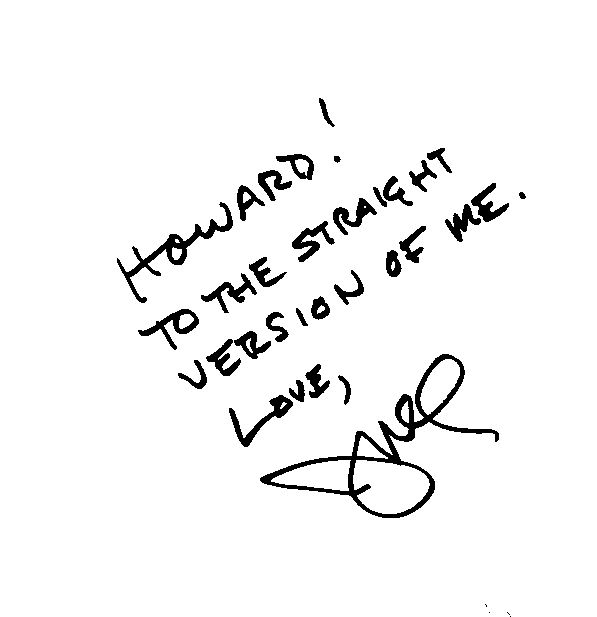 HOWARD!
TO THE STRAIGHT
VERSION OF ME.
LOVE,